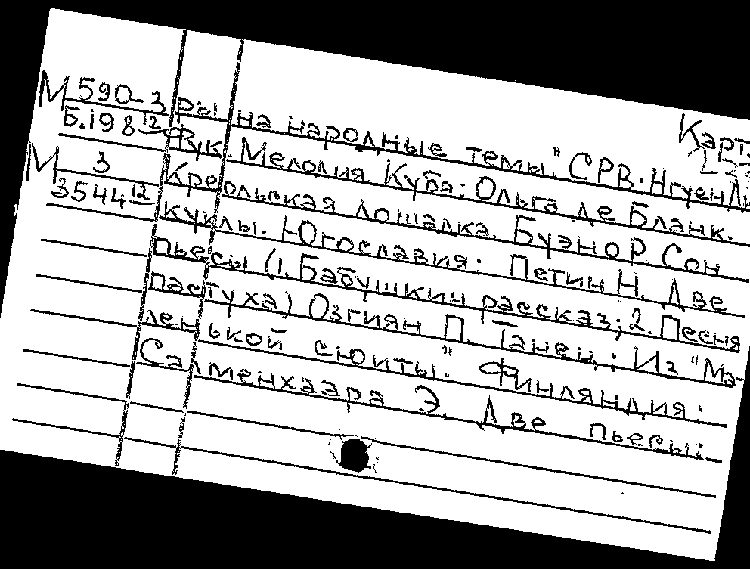 Карт.
М 590-3
Б.198 12
М 3
3544 12
ры на народные темы." СРВ. Нгуен Ди
Фук. Мелодия Куба: Ольга де Бланк.
Креольская лошадка. Буэно Р. Сон
куклы. Югославия: Петин Н. Две
пьесы (1. Бабушкин рассказ; 2. Песня
пастуха) Озгиян П. Танец: Из "Ма-
ленькой сюиты." Финляндия:
Салменхаара Э. Две пьесы: